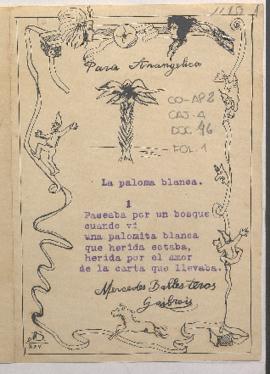 Para Anangelica
CO-AP2
CAJ-A
DOC 46
FOL. 1
La paloma blanca.
1
Paseaba por un bosque
cuando vi
una palomita blanca
que herida estaba,
herida por el amor
de la carta que llevaba.
Mercedes Ballesteros
Gaibrois